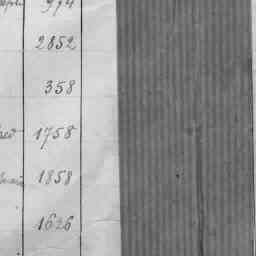 994
2852
358
1758
1858
1626